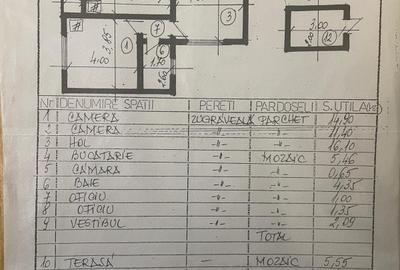 7
3
3.00
12
1
3,85
4.00
6
Nr DENUMIRE SPATII PERETI PARDOSELI S.UTILA
1 CAMERA ZUGRAVEALA PARCHET 14,90
2 CAMERA -"- -"- 11,40
3 HOL -"- -"- 16,10
4 BUCATARIE -"- MOZAIC 5,46
5 CAMARA -"- -"- 0,65
6 BAIE -"- -"- 4,35
7 OFICIU -"- -"- 1,00
8 OFICIU -"- -"- 1,35
9 VESTIBUL -"- -"- 2,09
TOTAL
10 TERASĂ — MOZAIC 5,55